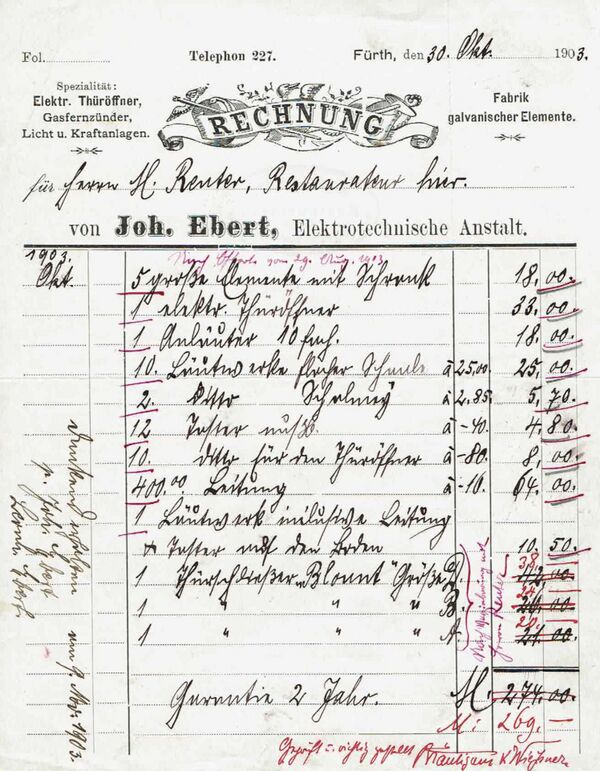 Fol.
Telephon 227.
Fürth, den 30 Okt. 1903.
Spezialität:
Elektr. Thüröffner,
Gasfernzünder,
Licht u. Kraftanlagen.
RECHNUNG
Fabrik
galvanischer Elemente.
für Herrn M. Reuter, Restaurateur hier.
von Joh. Ebert, Elektrotechnische Anstalt.
1903. Nach Offerte vom 29. Aug. 1903
Okt. 5 große Elemente mit Schrank 18,00.
1 elektr. Thüröffner 33.00.
1 Anläuter 10 fach. 18.00.
10. Läutwerke flacher Schaale à 25,00 25,00.
2. ditto Schalmey à 2,85. 5,70.
12 Taster nußb. à -40. 4.80.
10. ditto für den Thüröffner à -80. 8,00.
400.00 Leitung à -16. 64.00.
1 Läutwerk inclusive Leitung
+ Taster auf den Boden 10.50.
1 Thürschließer „Blount" Größe D. 38.
1 " " " B. 24. 26.00
1 " " " A. 20. 21.00.
Nach Vereinbarung mit
Herrn Reuter
Garantie 2 Jahr. M. 274.00.
M: 269.—
Geprüft u. richtig gestellt
dankend erhalten am 9. Nov. 1903.
p. Joh. Ebert